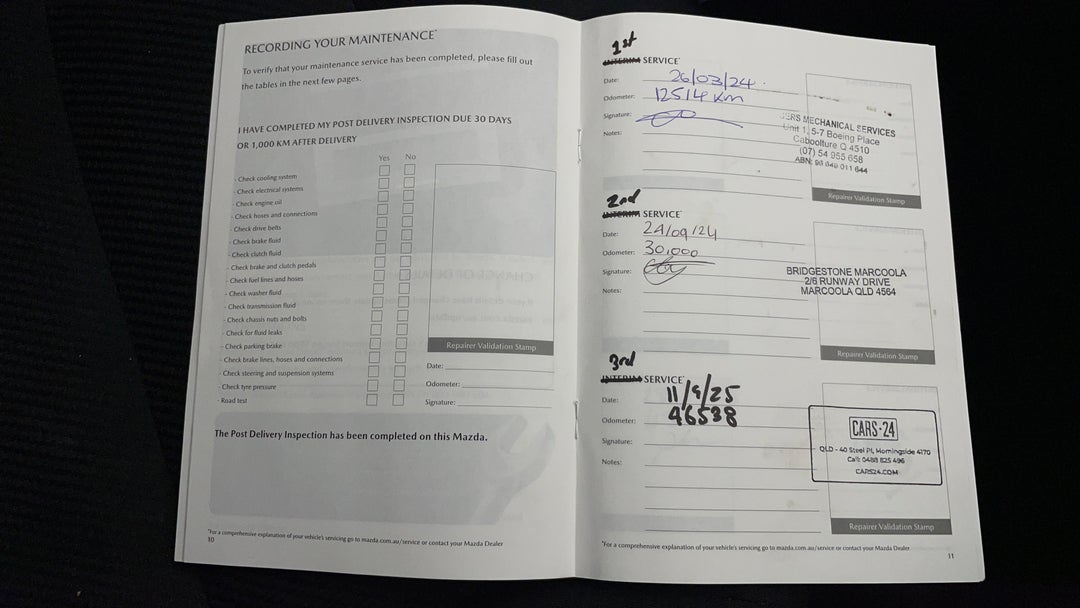 RECORDING YOUR MAINTENANCE*
To verify that your maintenance service has been completed, please fill out
the tables in the next few pages.
I HAVE COMPLETED MY POST DELIVERY INSPECTION DUE 30 DAYS
OR 1,000 KM AFTER DELIVERY
Yes No
- Check cooling system
- Check electrical systems
- Check engine oil
- Check hoses and connections
- Check drive belts
- Check brake fluid
- Check clutch fluid
- Check brake and clutch pedals
- Check fuel lines and hoses
- Check washer fluid
- Check transmission fluid
- Check chassis nuts and bolts
- Check for fluid leaks
- Check parking brake
- Check brake lines, hoses and connections
- Check steering and suspension systems
- Check tyre pressure
- Road test
Repairer Validation Stamp
Date:
Odometer:
Signature:
The Post Delivery Inspection has been completed on this Mazda.
*For a comprehensive explanation of your vehicle's servicing go to mazda.com.au/service or contact your Mazda Dealer
10
1st
INTERIM SERVICE*
Date: 26/03/24
Odometer: 12514 km
Signature:
Notes:
MECHANICAL SERVICES
Unit 1, 5-7 Boeing Place
Caboolture Q 4510
(07) 54 955 658
ABN: 011 644
Repairer Validation Stamp
2nd
INTERIM SERVICE*
Date: 24/09/24
Odometer: 30,000
Signature:
Notes:
BRIDGESTONE MARCOOLA
2/6 RUNWAY DRIVE
MARCOOLA QLD 4564
Repairer Validation Stamp
3rd
INTERIM SERVICE*
Date: 11/9/25
Odometer: 46538
Signature:
Notes:
CARS·24
QLD - 40 Steel Pl, Morningside 4170
Call: 0488 825 496
CARS24.COM
Repairer Validation Stamp
*For a comprehensive explanation of your vehicle's servicing go to mazda.com.au/service or contact your Mazda Dealer
11